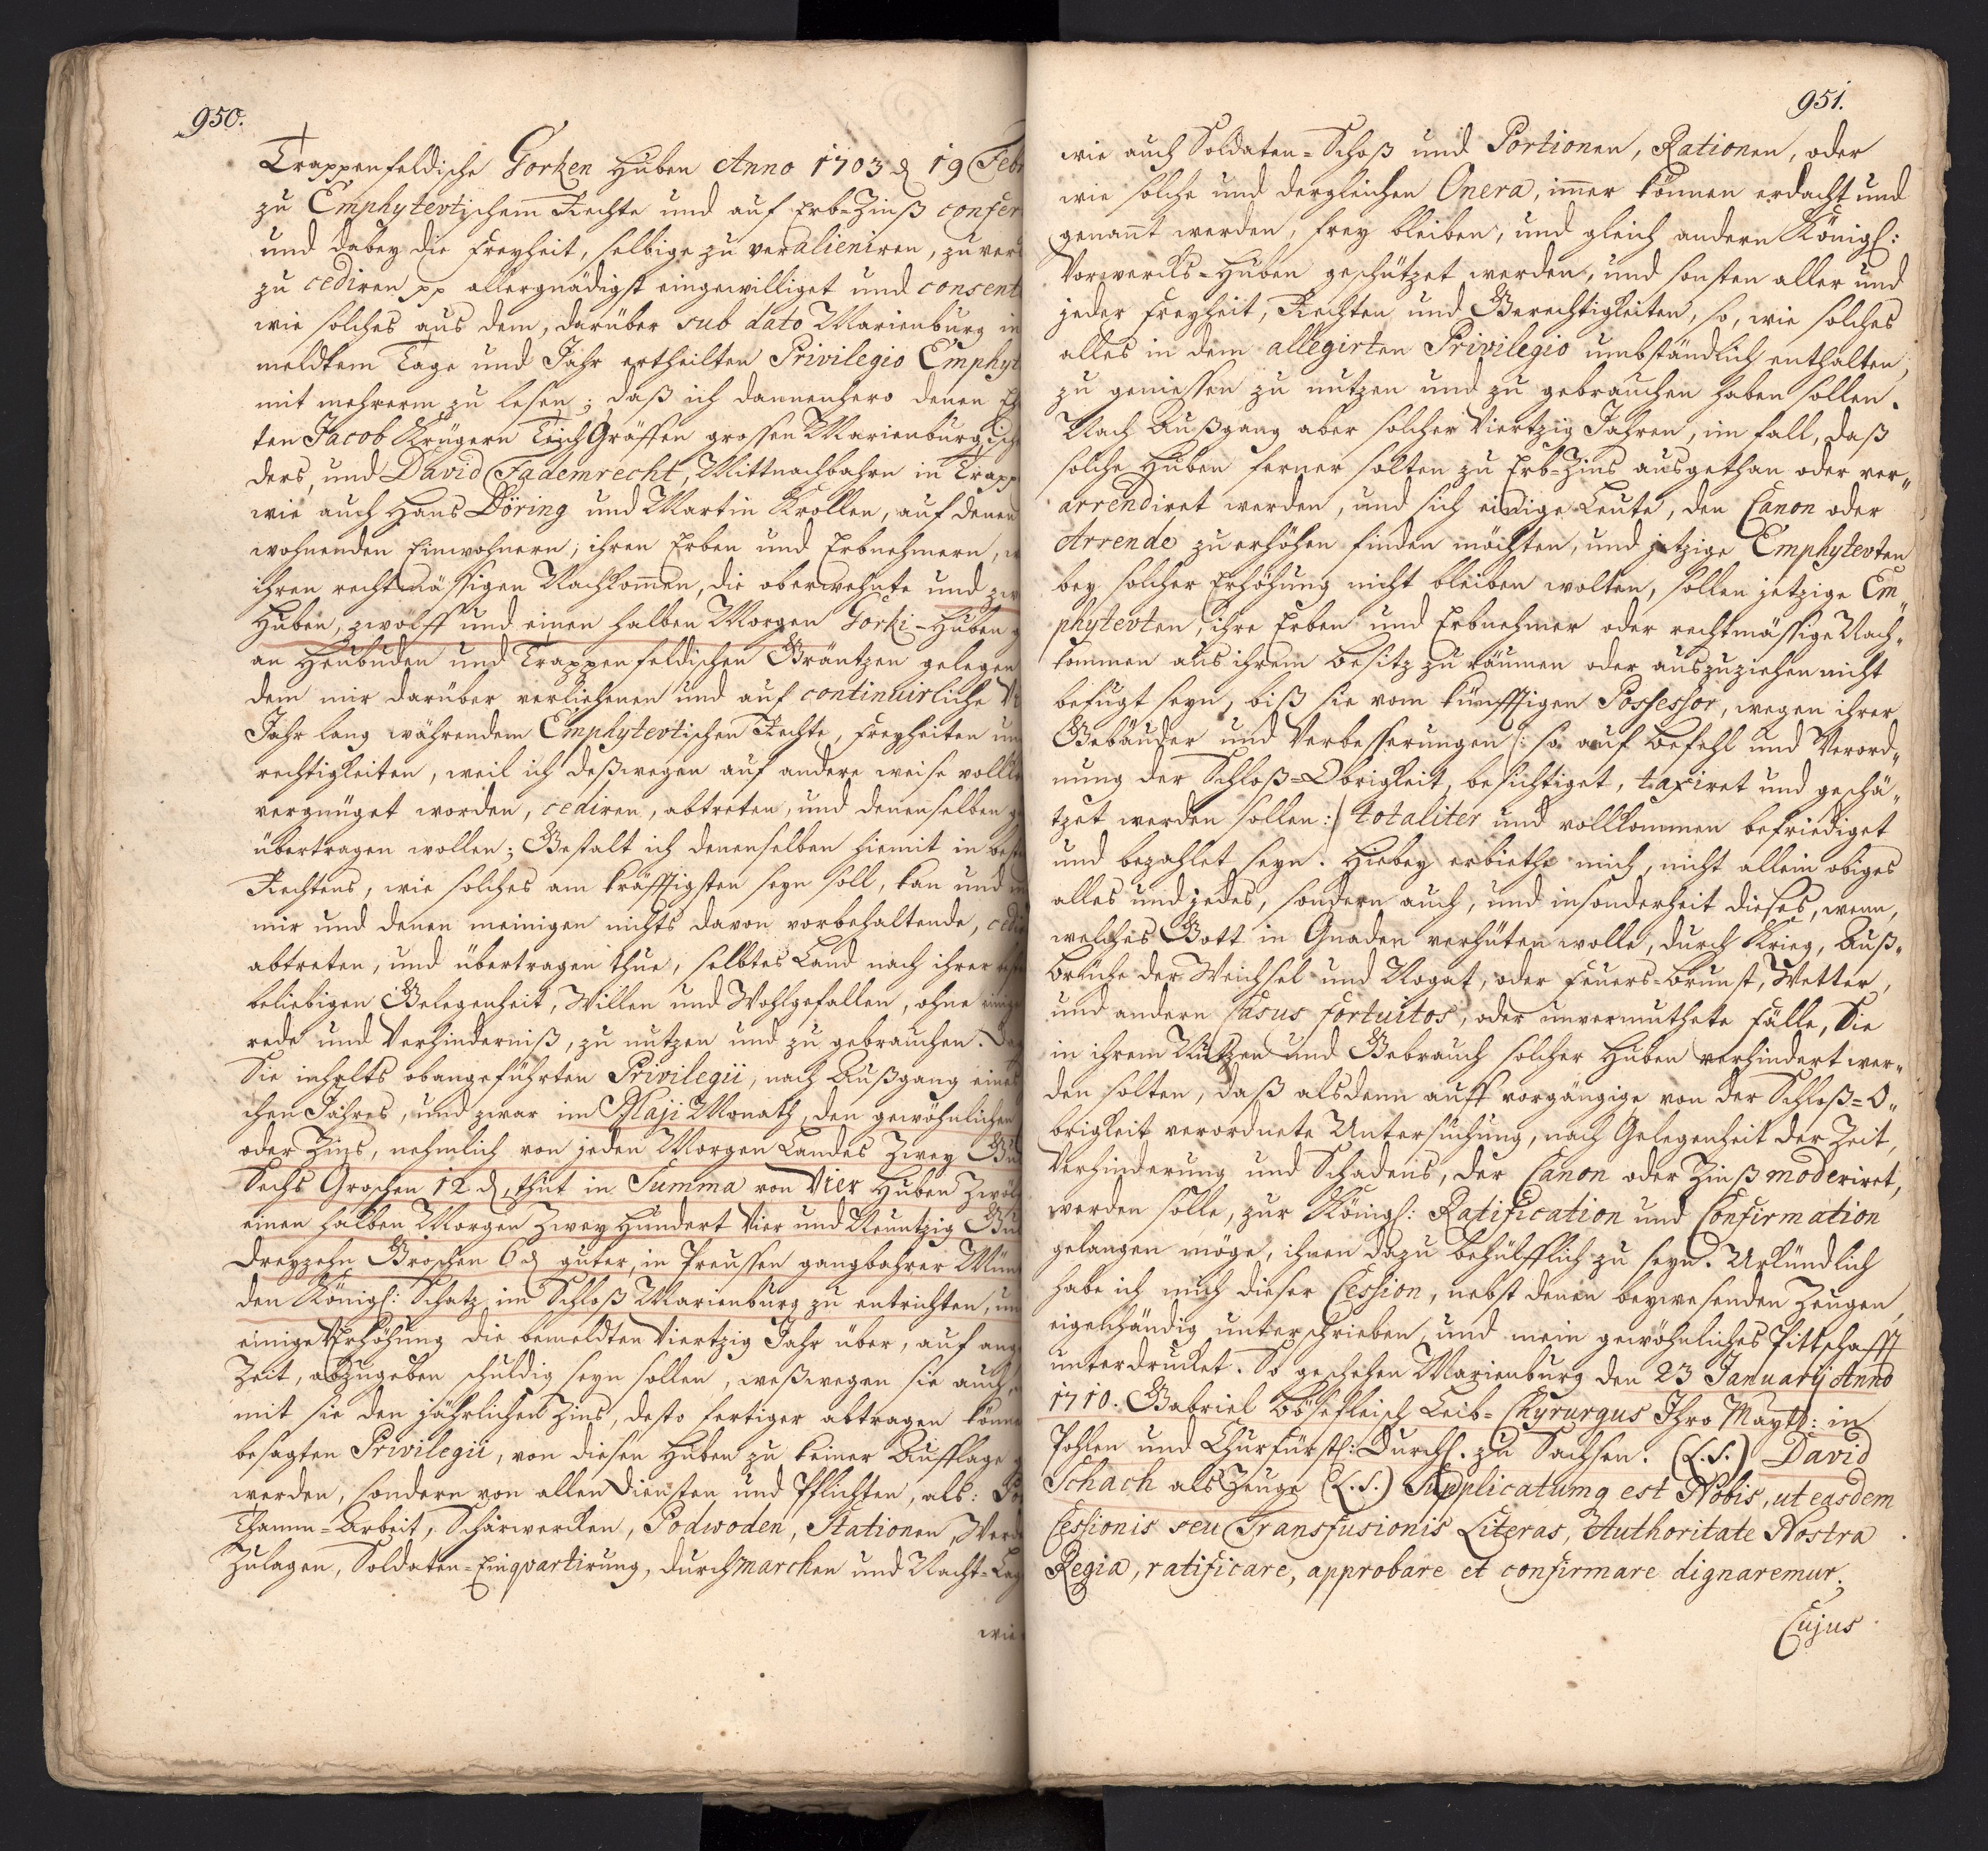 950.
Trappenfeldische Gorken Huben Anno 1703 d 19 Febr
zu Emphytevtischem Rechte und auf Erb-Zinß confer
und dabey die Freyheit, selbige zu veralieniren, zu ver
zu cediren pp allergnädigst eingewilliget und consent
wie solches aus dem, darüber sub dato Marienburg in
meldtem Tage und Jahr ertheilten Privilegio Emphyt
mit mehrerm zu lesen; daß ich dannenhero denen Eh
ten Jacob Krügern Teich Gräffen grossen Marienburgisch
ders, und David Fademrecht, Mittnachbahrn in Trapp
wie auch Hans Döring und Martin Krollen, auf denen
wohnenden Einwohnern, ihren Erben und Erbnehmern,
ihren rechtmässigen Nachkom̄en, die oberwehnte und zw
Huben, zwölff und einen halben Morgen Gorki-Huben
an Heubuden und Trappenfeldischen Gräntzen gelegen
dem mir darüber verliehenen und auf continuirliche Vi
Jahr lang währendem Emphytevtischen Rechte, Freyheiten un
rechtigkeiten, weil ich deßwegen auf andere weise vollk
vergnüget worden, cediren, abtreten, und denenselben
übertragen wollen; Gestalt ich denenselben hiemit in best
Rechtens, wie solches am kräfftigsten seyn soll, kan und m
mir und denen meinigen nichts davon vorbehaltende, cedi
abtreten, und übertragen thue, selbtes Land nach ihrer
beliebigen Gelegenheit, Willen und Wohlgefallen, ohne einige
rede und Verhinderniß, zu nutzen und zu gebrauchen. Da
Sie inhalts obangeführten Privilegii, nach Außgang eines
chen Jahres, und zwar im Maji Monath, den gewöhnlichen
oder Zins, nehmlich von jeden Morgen Landes Zwey Gu
Sechs Groschen 12 d, thut in Summa von Vier Huben Zwöl
einen halben Morgen Zwey Hundert Vier und Neuntzig Gu
dreyzehn Groschen 6 d guter, in Preussen gangbahrer Mün
den Königl: Schatz im Schloß Marienburg zu entrichten, un
einige Erhöhung die bemeldten Viertzig Jahr über, auf ang
Zeit, abzugeben schuldig seyn sollen, weßwegen sie auch,
mit sie den jährlichen Zins, desto fertiger abtragen könne
besagten Privilegii, von diesen Huben zu keiner Aufflage
werden, sondern von allen Diensten und Pflichten, als:
Thamm-Arbeit, Scharwercken, Podwoden, Stationen, Werd
Zulagen, Soldaten-Einqvartirung, durchmarchen und Nacht-Lag
wie
951.
wie auch Soldaten-Schoß und Portionen, Rationen, oder
wie solche und dergleichen Onera, im̄er können erdacht und
genan̄t werden, frey bleiben, und gleich andern Königl:
Vorwercks-Huben geschützet werden, und sonsten aller und
jeder Freyheit, Rechten und Gerechtigkeiten, so, wie solches
alles in dem allegirten Privilegio umbständlich enthalten,
zu geniessen zu nutzen und zu gebrauchen haben sollen.
Nach Außgang aber solcher Viertzig Jahren, im fall, daß
solche Huben ferner solten zu Erb-Zins ausgethan oder ver„
arrendiret werden, und sich einige Leute, den Canon oder
Arrende zu erhöhen finden möchten, und jetzige Emphytevten
bey solcher Erhöhung nicht bleiben wolten, sollen jetzige Em„
phytevten, ihre Erben und Erbnehmer oder rechtmässige Nach„
kommen aus ihrem Besitz zu räumen oder auszuziehen nicht
befugt seyn, biß sie vom künfftigen Possessor, wegen ihrer
Gebäuder und Verbesserungen /: so auf Befehl und Verord„
nung der Schloß-Obrigkeit, besichtiget, taxiret und geschä„
tzet werden sollen :/ totaliter und vollkommen befriediget
und bezahlet seyn. Hiebey erbiethe mich, nicht allein obiges
alles und jedes, sondern auch, und insonderheit dieses, wenn,
welches Gott in Gnaden verhüten wolle, durch Krieg, Auß„
brüche der Weichsel und Nogat, oder Feuers-Brunst, Wetter,
und andern Casus fortuitos, oder unvermuthete Fälle, Sie
in ihrem Nutzen und Gebrauch solcher Huben verhindert wer„
den solten, daß alsdenn auff vorgängige von der Schloß-O„
brigkeit verordnete Untersuchung, nach Gelegenheit der Zeit,
Verhinderung und Schadens, der Canon oder Zinß moderiret,
werden solle, zur Königl: Ratification und Confirmation
gelangen möge, ihnen dazu behülfflich zu seyn. Urkündlich
habe ich mich dieser Cession, nebst denen beywesenden Zeugen,
eigenhändig unterschrieben, und mein gewöhnliches Pittschafft
unterdrucket. So geschehen Marienburg den 23 Januarij Anno
1710. Gabriel Bösefleisch Leib-Chyrurgus Ihro Maytt: in
Pohlen und Churfürstl: Durchl. zu Sachsen. (L.S.) David
Schach als Zeuge (L.S.) Supplicatumq est Nobis, ut easdem
Cessionis seu Transfusionis Literas, Authoritate Nostra
Regia, ratificare, approbare et confirmare dignaremur,
Cujus